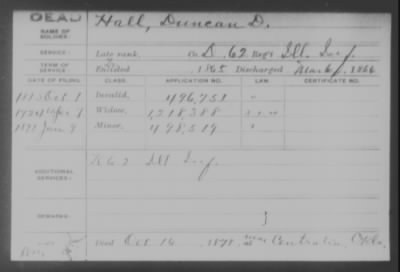 DEAD
NAME OF SOLDIER:
Hall, Duncan D.
SERVICE:
Late rank, Co. D. 62 Reg't Ill. Inf.
TERM OF SERVICE:
Enlisted 1865 Discharged Mar 6, 1866
DATE OF FILING. CLASS. APPLICATION NO. LAW. CERTIFICATE NO.
Oct 1 Invalid, 496,751
Widow, 1,218,388
Minor, 498,519
ADDITIONAL SERVICES:
62 Ill Inf.
REMARKS:
Died Oct 16 1898, near Centralia, Okla.